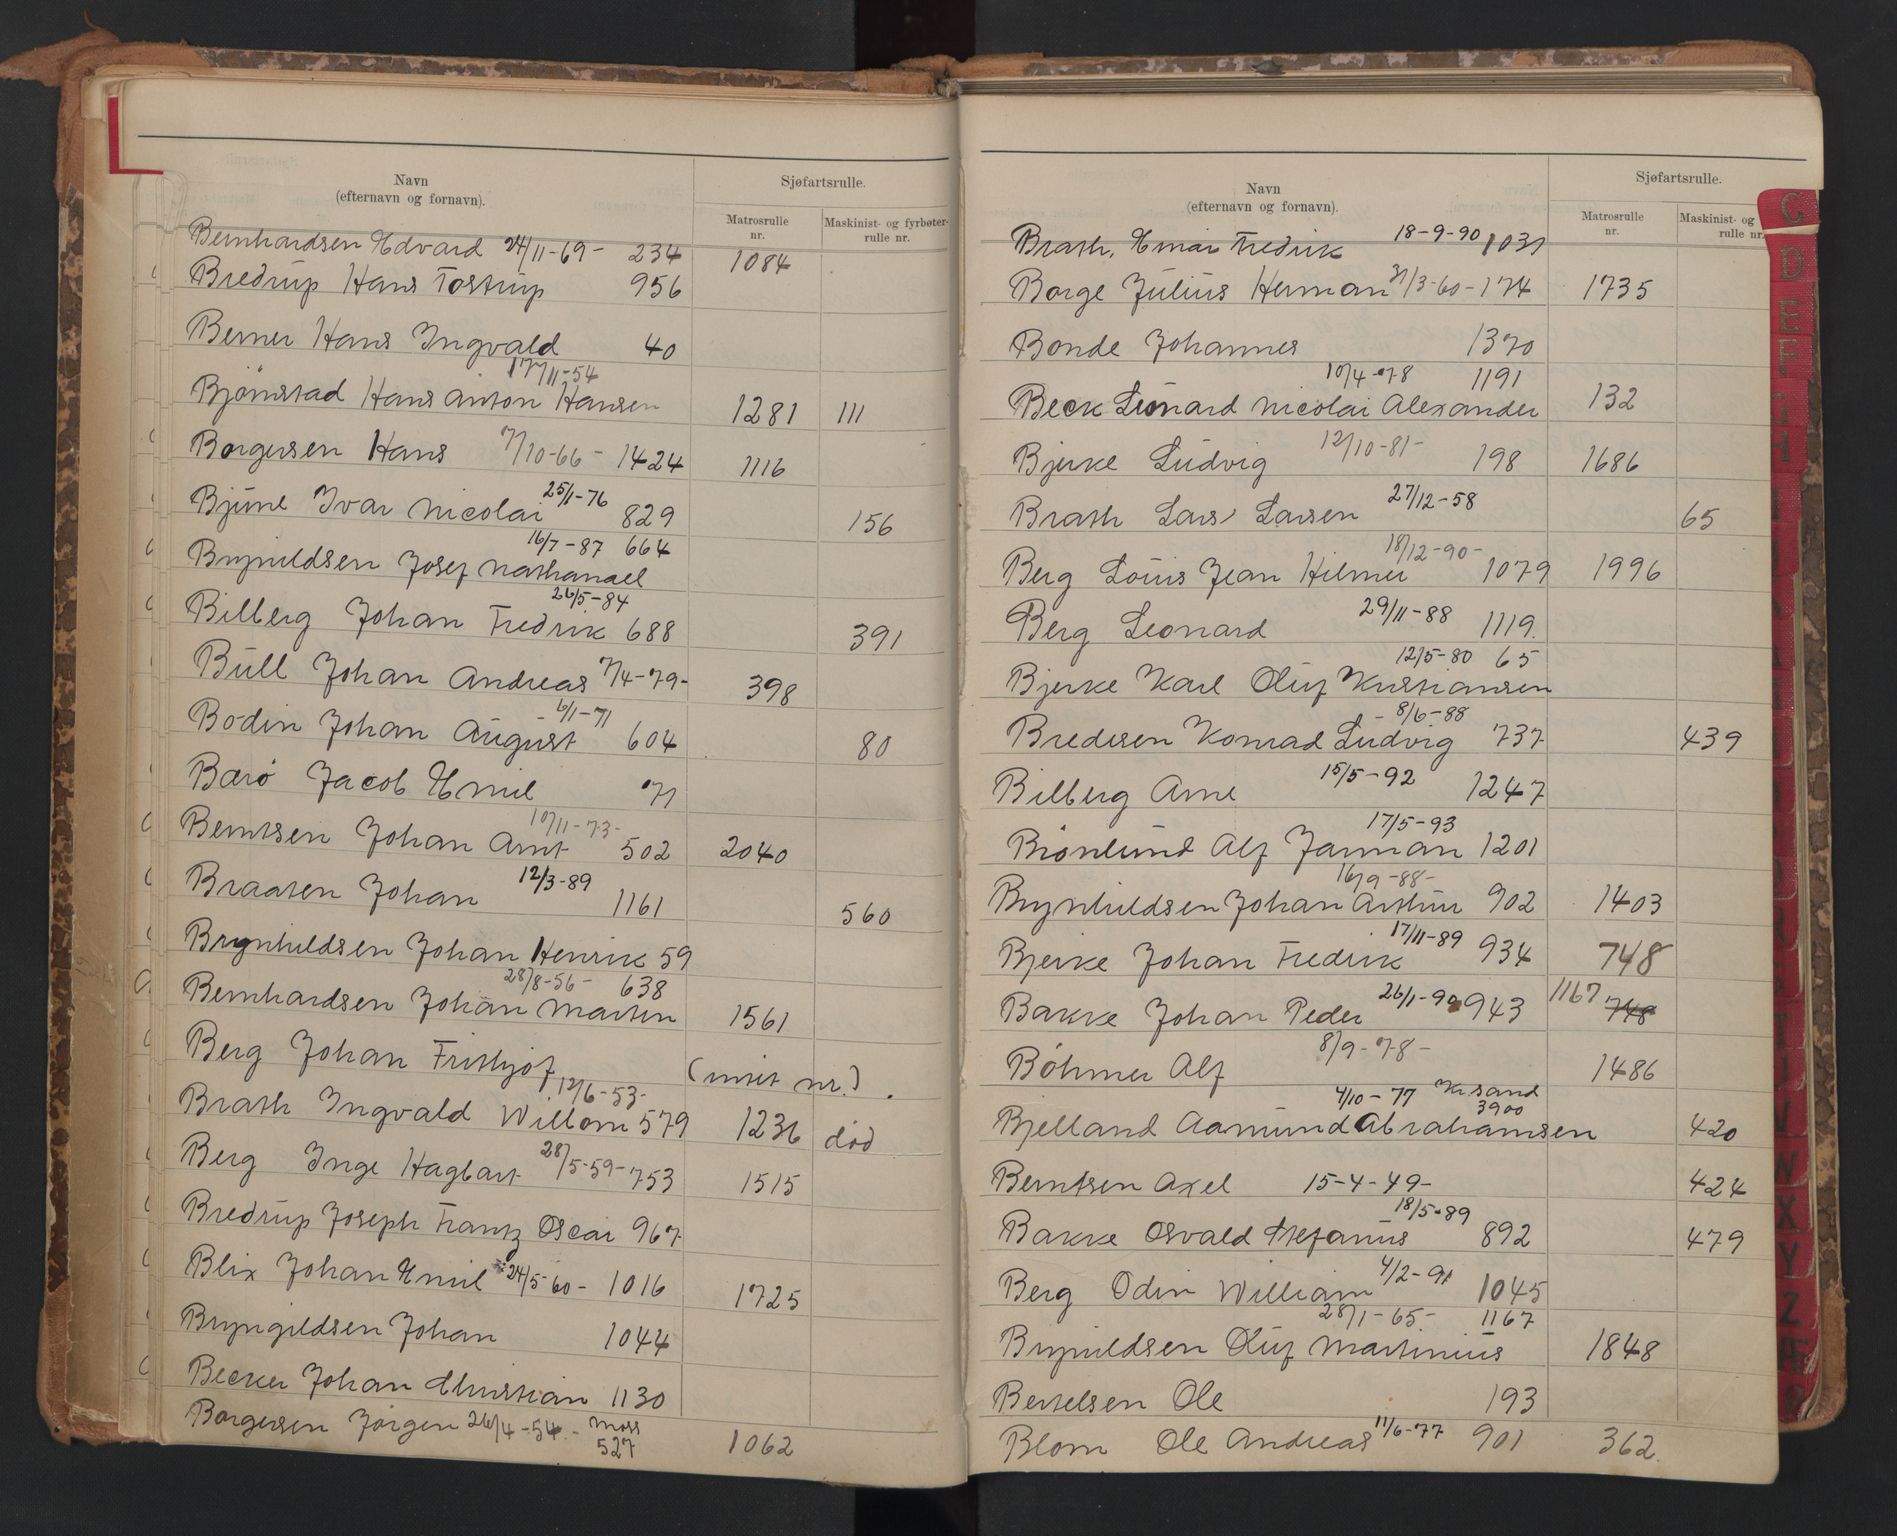 Navn
(efternavn og fornavn).
Sjøfartsrulle.
Matrosrulle
nr.
Maskinist- og fyrbøter-
rulle nr.
Bernhardsen Edvard 24/11-69- 234 1084
Bredrup Hans Tostrup 956
Berner Hans Ingvald 40
17/11-54
Bjørnstad Hans Anton Hansen 1281 111
Borgersen Hans 7/10-66- 1424 1116
Bjune Ivar Nicolai 25/1-76 829 156
16/7-87 664
Brynildsen Josef Nathanael
26/5-84
Bilberg Johan Fredrik 688 391
Bull Johan Andreas 7/4-79- 398
6/1-71
Bodin Johan August 604 80
Bærø Jacob Emil 71
10/11-73-
Berntsen Johan Arnt 502 2040
Braaten Johan 12/3-89 1161 560
Brynhildsen Johan Henrik 59
28/8-56- 638
Bernhardsen Johan Martin 1561
Berg Johan Frithjof (intet nr.)
12/6-53-
Brath Ingvald Willom 579 1236 død
Berg Inge Hagbart 28/5-59- 753 1515
Bredrup Joseph Frantz Oscar 967
Blix Johan Emil 24/5-60- 1016 1725
Bryngildsen Johan 1044
Becker Johan Christian 1130
Borgersen Jørgen 26/4-54.- Moss
527 1062
Navn
(efternavn og fornavn).
Sjøfartsrulle.
Matrosrulle
nr.
Maskinist- og
rulle nr.
Brath, Einar Fredrik 18-9-90 1031
Borge Julius Herman 31/3-60- 174 1735
Bonde Johannes 1370
10/4-78 1191
Beck Leonard Nicolai Alexander 132
Bjerke Ludvig 12/10-81- 198 1686
Brath Lars Larsen 27/12-58 65
18/12-90-
Berg Louis Jean Hilmer 1079 1996
Berg Leonard 29/11-88 1119.
12/5-80 65
Bjerke Karl Oluf Kristiansen
- 8/6-88
Bredesen Konrad Ludvig 737 439
Bilberg Arne 15/5-92 1247
17/5-93
Brønlund Alf Jarman 1201
16/9-88-
Brynhildsen Johan Arthur 902 1403
17/11-89
Bjerke Johan Fredrik 934 748
Bakke Johan Peder 26/1-90 943 1167 748
8/9-78-
Böhmer Alf 1486
4/10-77 Kr.sand
3900
Bjelland Aamund Abrahamsen 420
Berntsen Axel 15-4-49- 424
18/5-89
Bakke Osvald Stefanus 892 479
4/2-91
Berg Odin William 1045
28/1-65- 1167
Brynildsen Oluf Martinius 1848
Bertelsen Ole 193
Blom Ole Andreas 11/6-77 901 362.
C
D
E
F
V
W
X
Y
Z
Æ